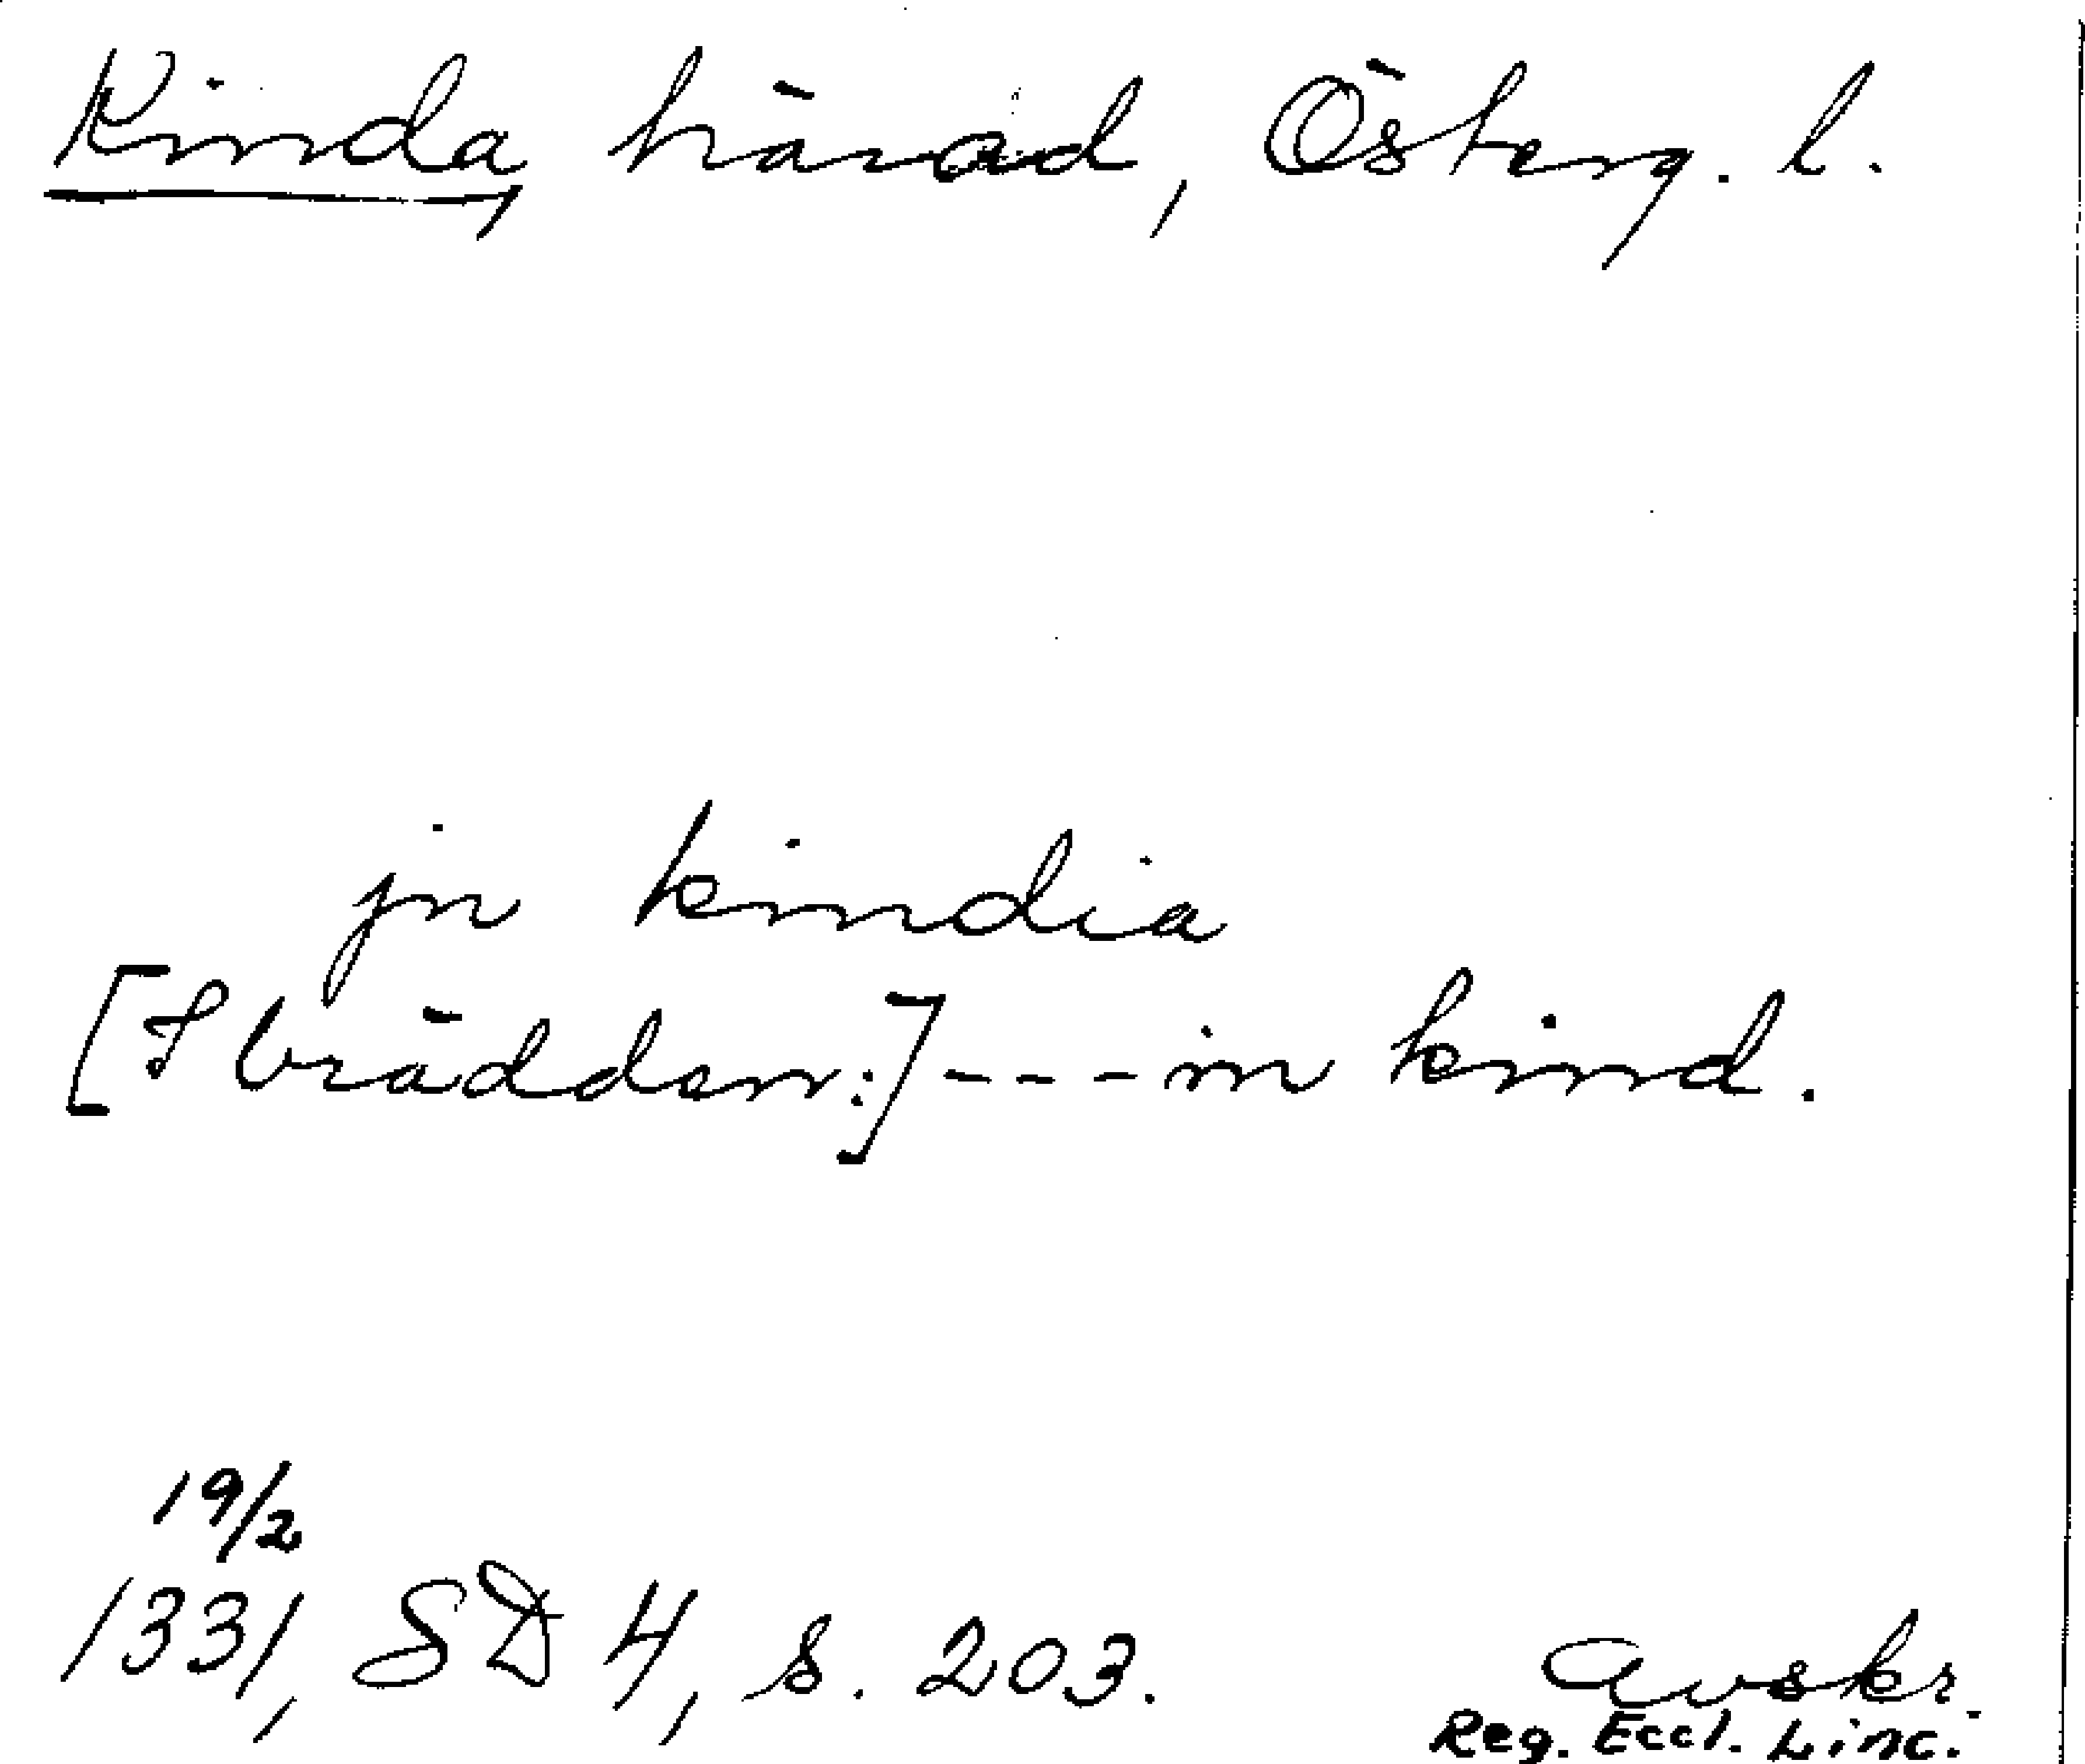 Kinda, härad, Österg. l.
jn kindia
[I brädden:] --- in kind.
19/2
1331, SD 4, s. 203.
Avskr.
Reg. Eccl. Linc.